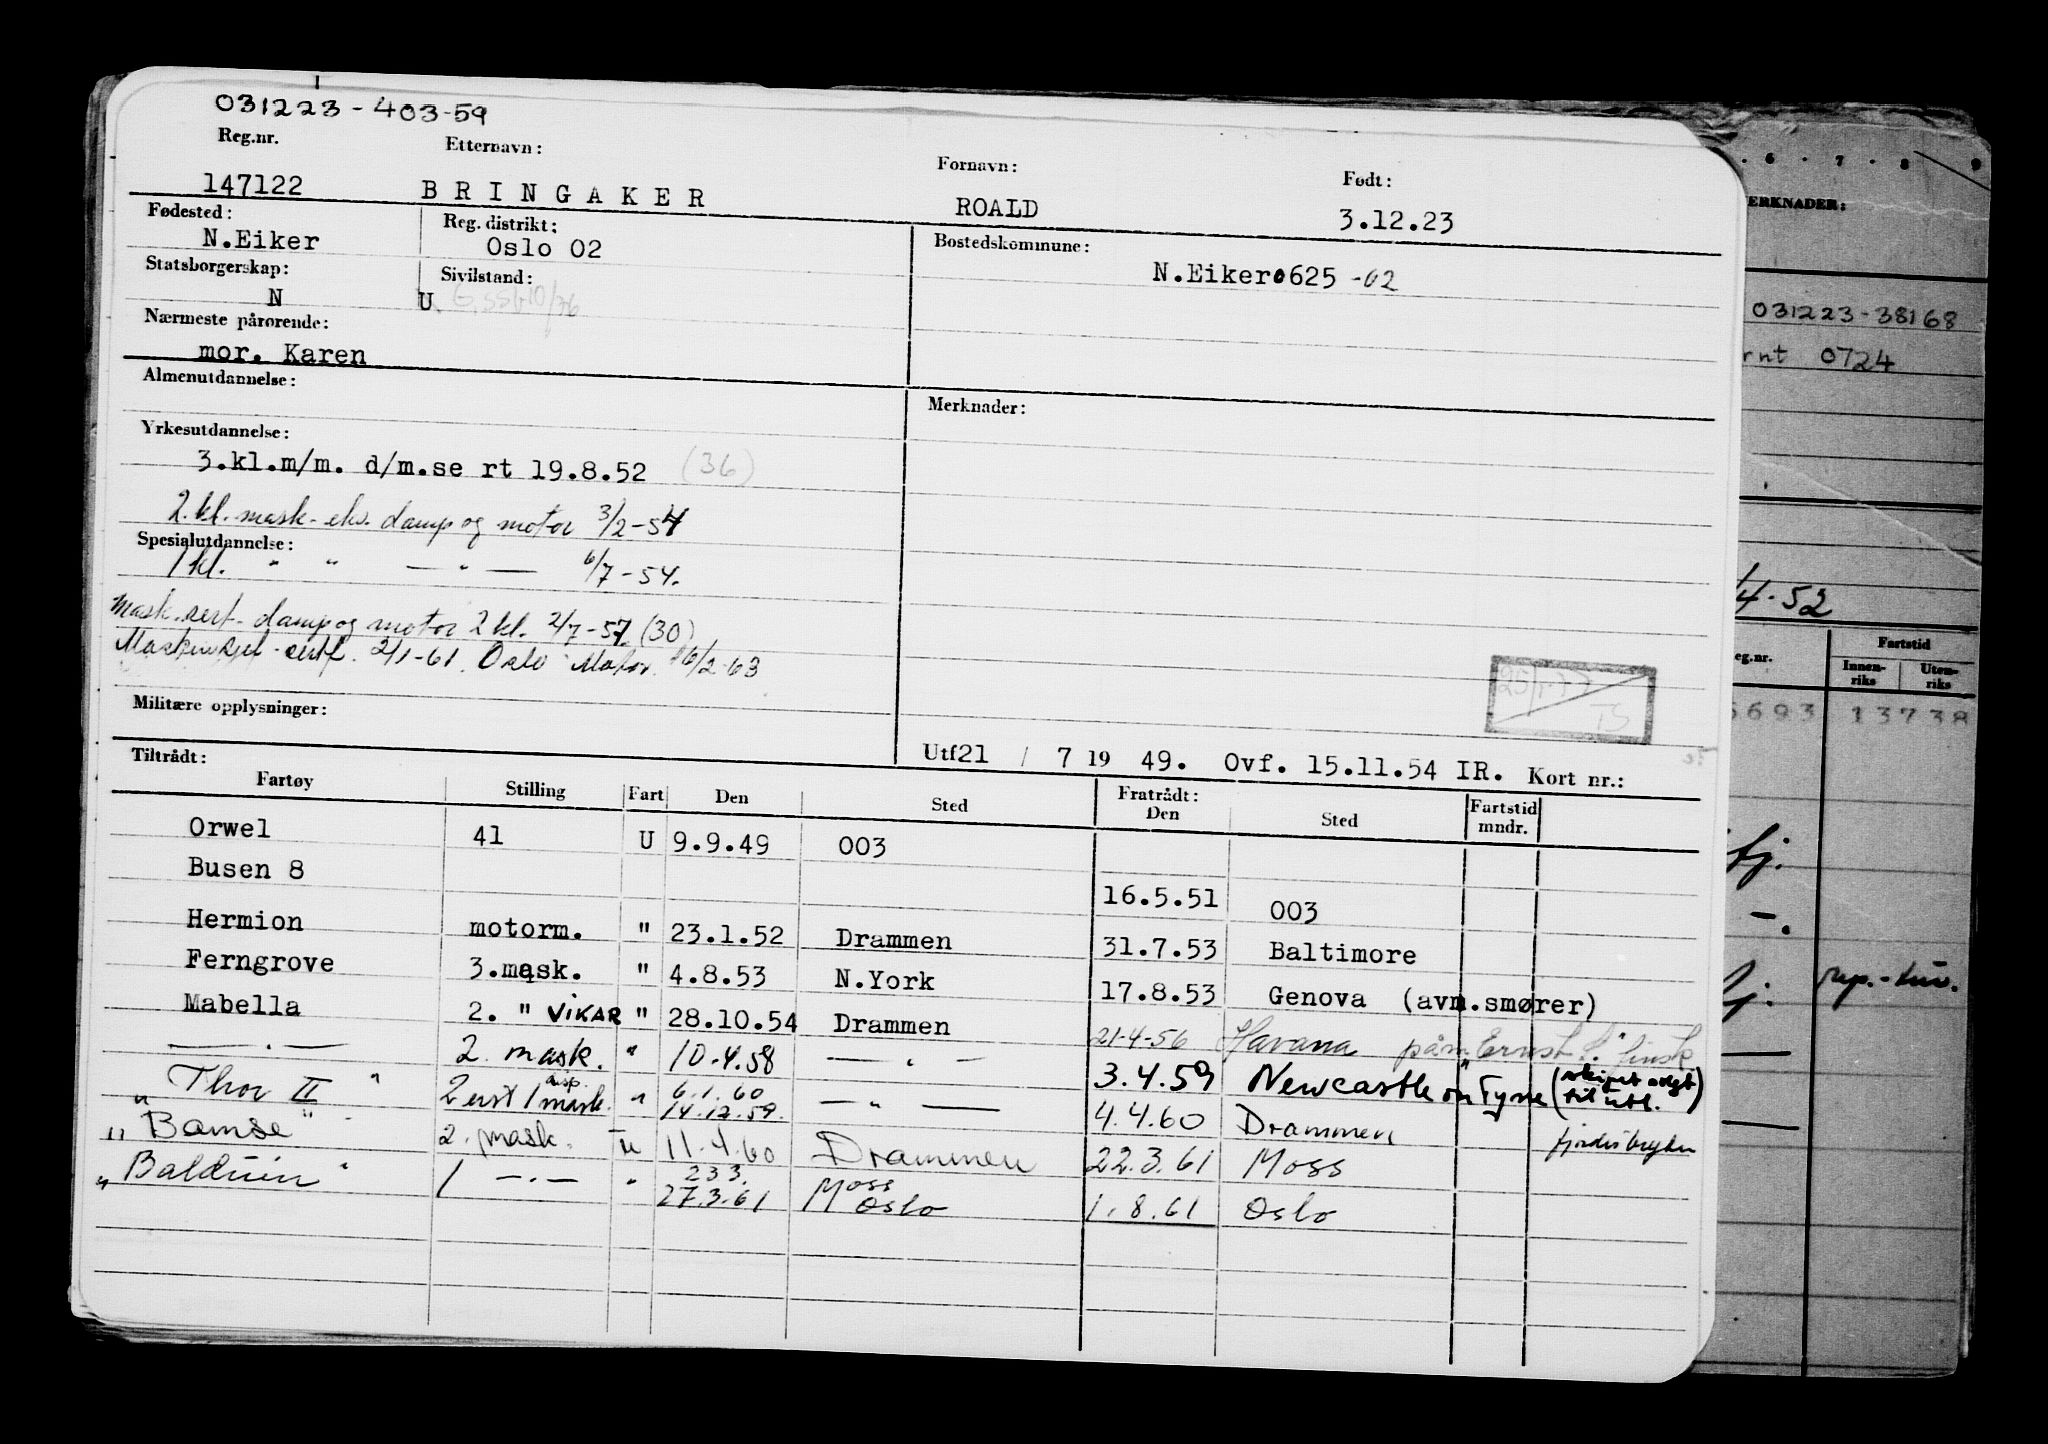 031223 - 403-59
Reg.nr. Etternavn: Fornavn: Født:
147122 BRINGAKER ROALD 3.12.23
Fødested: Reg. distrikt: Bostedskommune:
N.Eiker Oslo 02 N.Eiker 0625 -02
Statsborgerskap: Sivilstand:
N U
Nærmeste pårørende:
mor. Karen
Almenutdannelse: Merknader:
Yrkesutdannelse:
3.kl.m/m. d/m.se rt 19.8.52 (36)
2.kl. mask. eks. damp og motor 3/2-54
Spesialutdannelse:
1 kl. " " — " — 6/7-54.
Mask.sert. damp og motor 2 kl. 2/7-57 (30)
2/1-61. Oslo Motor. 6/2-63
Militære opplysninger:
Utf21 / 7 19 49. Ovf. 15.11.54 IR. Kort nr.:
Tiltrådt: Fratrådt:
Fartøy Stilling Fart Den Sted Den Sted Fartstid mndr.
Orwel 41 U 9.9.49 003
Busen 8 16.5.51 003
Hermion motorm. " 23.1.52 Drammen 31.7.53 Baltimore
Ferngrove 3.mask. " 4.8.53 N.York 17.8.53 Genova (avm.smører)
Mabella 2. " VIKAR " 28.10.54 Drammen 21-4-56 Havana påm. "Ernst L." finsk
— " — 2. mask. " 10.4.58 — " — 3.4.59 Newcastle on Tyne (skipet solgt til utl.)
"Thor II" 2 erst 1 disp. mask. " 6.1.60 14.12.59. — " — 4.4.60 Drammen
"Bamse" 2. mask. Iu 11.4.60 Drammen 22.3.61 Moss
"Balduin" 1 — " — " 233. 27.3.61 Moss Oslo 1.8.61 Oslo
6 · 7 · 8 9
ERKNADER:
031223-38168
rnt 0724
4-52
Fartstid
eg.nr. Innen-riks Uten-riks
6693 13738